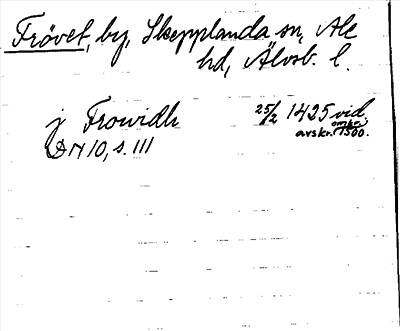 Frövet, by, Skepplanda sn, Ale
hd, Älvsb. l.
j Frowidh 25/2 1425 vid
avskr. omkr. 1500.
DN 10, s. 111